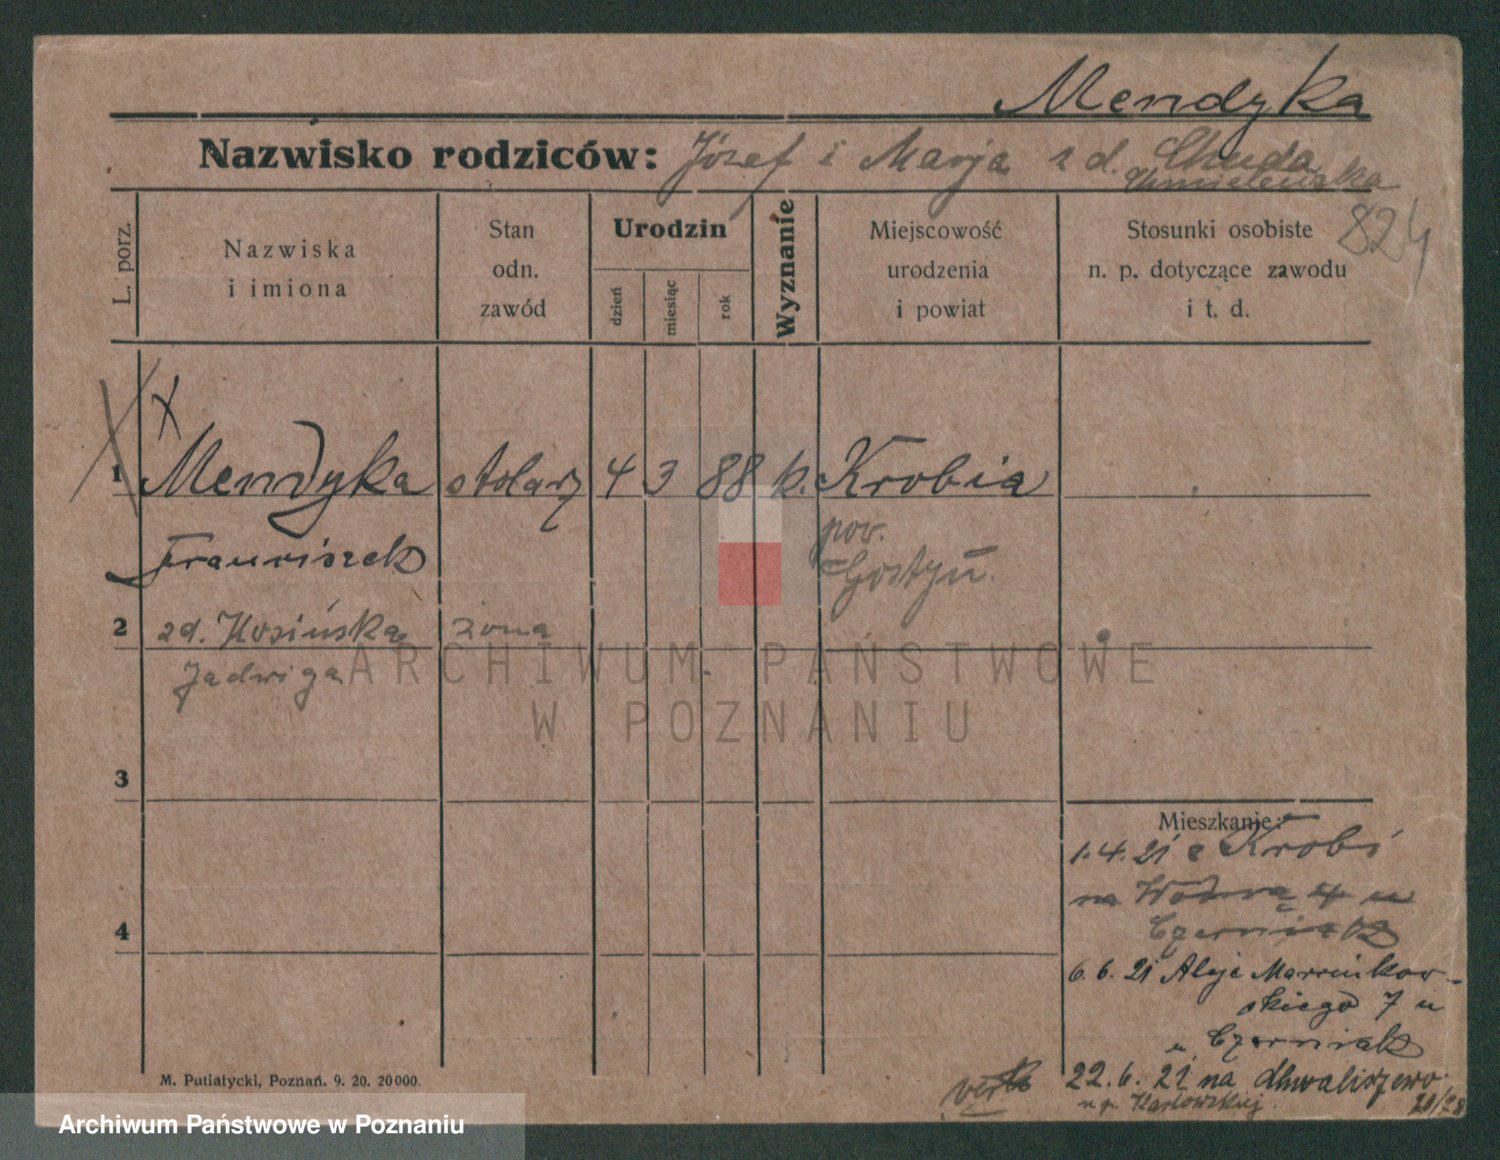 Mendyka
Nazwisko rodziców: Józef i Marja z d. Chuda
Chmielewska
824
L. porz.
Nazwiska
i imiona
Stan
odn.
zawód
Urodzin
dzień
miesiąc
rok
Wyznanie
Miejscowość
urodzenia
i powiat
Stosunki osobiste
n. p. dotyczące zawodu
i t. d.
1 Mendyka stolarz 4 3 88 k. Krobia
Franciszek
pow.
Gostyń.
2 zd. Kosińska żona
Jadwiga
3
4
Mieszkanie:
1.4.21 z Krobi
na Wodną 4 u
Czerniak
6.6.21 Aleje Marcinkow-
skiego 7 u
Czerniak
22.6.21 na Chwaliszewo
verte
M. Putiatycki, Poznań. 9. 20. 20000.
ARCHIWUM PAŃSTWOWE
W POZNANIU
Archiwum Państwowe w Poznaniu